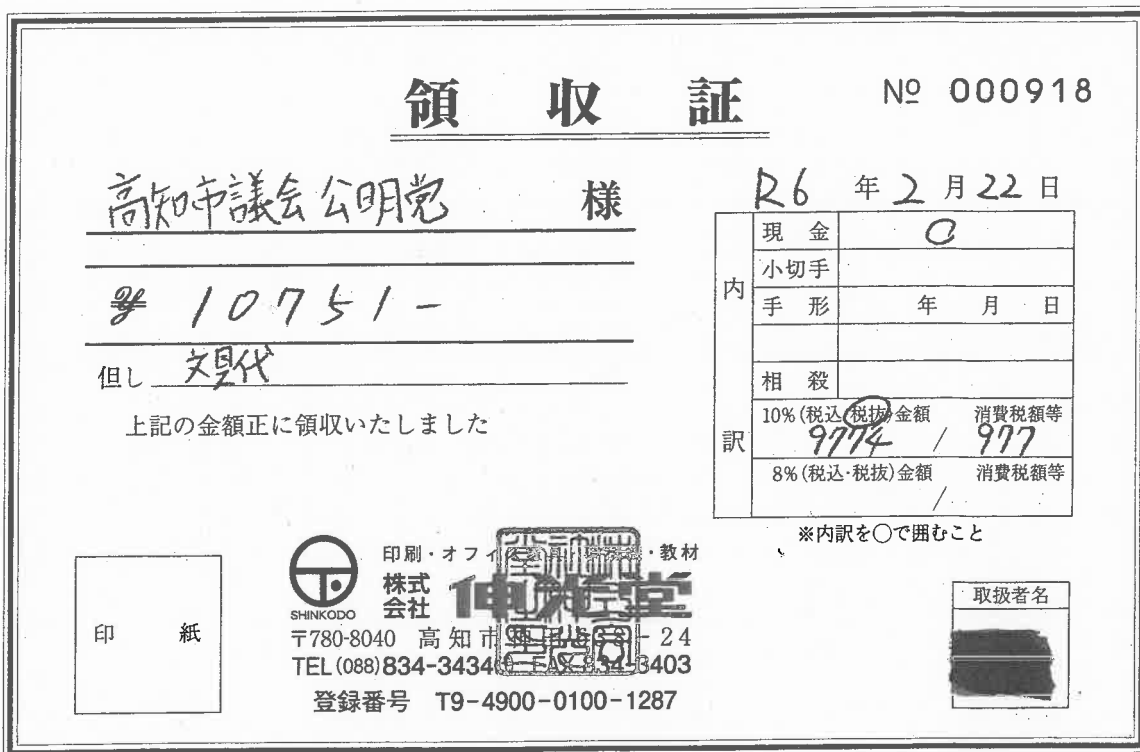 領収証
№ 000918
高知市議会公明党 様
R6 年 2 月 22 日
¥ 10751-
但し 文具代
上記の金額正に領収いたしました
内訳
現金 ○
小切手
手形 年 月 日
相殺
10%(税込・税抜)金額 消費税額等
9774 / 977
8%(税込・税抜)金額 消費税額等
/
※内訳を○で囲むこと
印紙
SHINKODO
印刷・オフィス ・教材
株式会社 伸光堂
〒780-8040 高知市 -24
TEL(088)834-3434 FAX 834-3403
登録番号 T9-4900-0100-1287
取扱者名